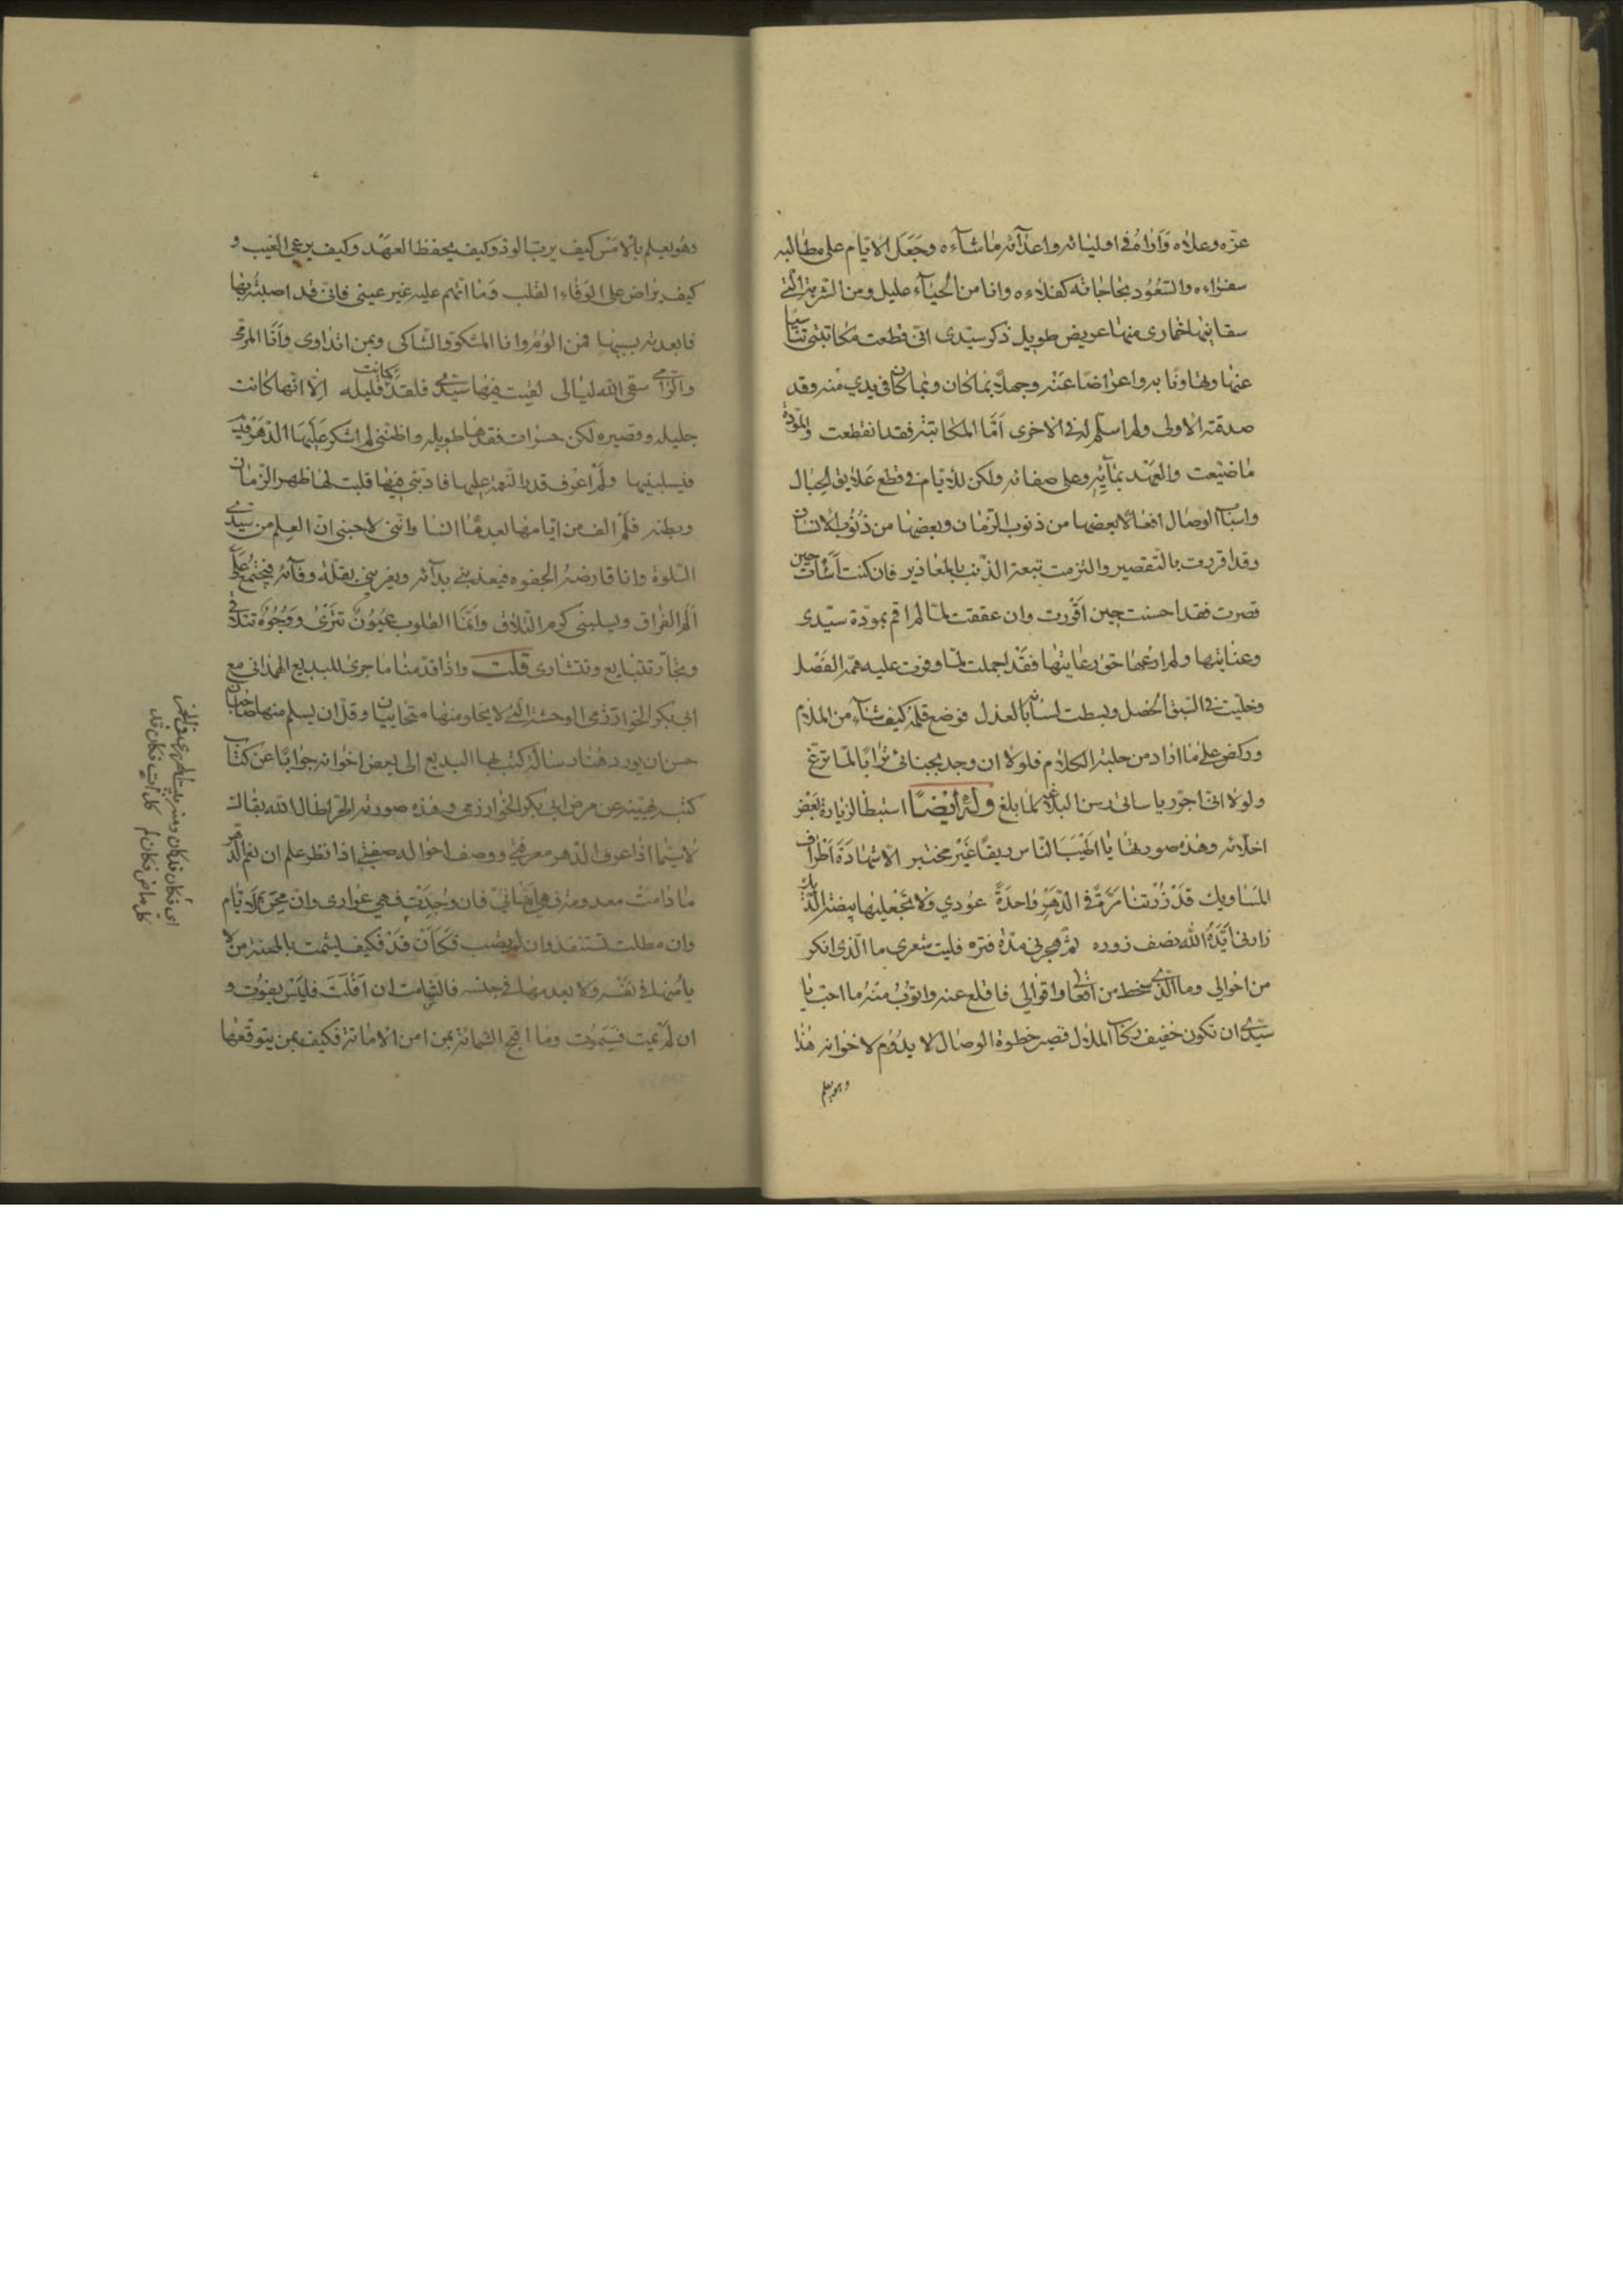 عزه وعلاه وَاَراهُ في اوليائه واعدآئه ماشآءه وجَعَل الايام على مطالبه
سفراءه والسّعُود بحاجاته كفلاءه وانا من الحيآء عليل ومن الشربة الّتي
سقانيها خمارى منها عريض طويل ذكر سيّدى انّى قطعت مكاتبتى تناسيا
عنها وتهاونا به واعراضا عنه وجهلا بما كان وبما كان فى يدي منه وقد
صدقته الاولى ولم اسلّم له فى الاخرى اَمّا المكاتبة فقد انقطعت والمودة
ما ضيّعت والعهد بمآئه وعلى صفائه ولكن للايام فى قطع علايق الحبال
واسباب الوصال افعالا بعضها من ذنوب الزمان وبعضها من ذنوب الانسان
وقد اقررت بالتقصير والتزمت تبعة الذنب بالمعاذير فان كنت اَسأت حين
قصرت فقد احسنت حين اقررت وان عققت لمّا لم اقم بمودة سيّدى
وعنايتها ولم ارعها حق رعايتها فقد اجملت لمّا وفرت عليه همّة الفَضل
وخليت فى السّبق الخصل وبسطت لسانه بالعذل فوضع قلمه كيف شآء من الملام
وركض على ما اراد من حلبة الكلام فلولا ان وجد بجنانى ترابا لما ترغ
ولولا انّى اجرّ رياسانى رسن البلاغه لما بلغ وله ايضًا استبطا لزيارة بعض
اخلّائه وهذه صورتها يا اطيَبَ الناس ريقًا غَيْر مختبر الّا شهادَةَ اَطْراف
المَساويك قَدْ زُرْتنا مَرَّةً في الدّهَرِ واحدَةً عوُدي ولا تجعليها بيضة الدّيك
زارنى ايّدَهُ الله نصف زوره ثمّ هجرنى مدّة فتره فليت شعرى ما الّذى انكر
من احوالى وما الّذى سخط من افعالى واقوالى فاقلع عنه واتوُب منه ما احبّ يا
سيّدى ان تكون خفيف ركاب الملال قصير خطوة الوصال لا يدوُم لاخوانه هذا
وهو يعلم
وهو يعلم بالامس كيف يربّ الود وكيف يحفظ العهَد وكيف يرعى الغيب و
كيف يراض على الوفاء القلب وَما اتهم عليه غير عينى فانى قد اصبته بها
فابعدته بسببها فمن الوم وانا المشكوّ والشاكى وبمن اتداوى وَاَنا المرمىّ
والرّامى سقى الله ليالى لقيت فيها سيّدى فلقد كانت قليله اِلّا انّها كانت
جليله وقصيره لكن حسرات فقدها طويله واظنّنى لم اشكر عَلَيها الدّهر فيه
فيسلبنيها ولَمْ اعْرف قدر النّعمة عليها فادبنى فيها قلبت لها ظهر الزّمان
وبطنه فلَمْ الف من ايّامها بعدها انسا وانّنى لاحبنى انّ العلم من سيّدى
السّلوة وانا قارضه الجفوه فيعذبنى بدآئه ويغرينى بقلّة وفآئه فيجتمع علىّ
اَلَم الفراق ويسلبنى كرم التلاق وانّما القلوب عُيُوُنٌ تترَئ ووُجُوُهٌ تتلاقى
وتجار تتبايع وتتشارى قلت واذا قدّمنا ما جرى للبديع الهمذانى مع
ابى بكر الخوارزمى الوحشة الّتى لا يخلو منها متحابّان وقلّ ان يسلم منها صاحبان
حسن ان يورد هنا رسالة كتب بها البديع الى بعض اخوانه جوابًا عن كتاب
كتب يهنيه عن مرض ابى بكر الخوارزمى وهذه صورته الحرّ اطال الله بقاك
لا سيّما اذا عرف الدّهر معرفتى ووصف احواله صفتى اذا نظر علم ان نعم الدّهر
ما دامَتْ معدومة فهى اَمانىّ فان وُجِدَتْ فهى عوارى وانّ محن الايام
وان مطلت تستنفد وان لم تصب فكاَنْ قَدْ فكيف يشمت بالمحنة من لا
ياْمنها فى نفسه ولا يعدمها فى جنسه فالشّامت ان اَفْلَتَ فليَس يفوُت و
ان لَمْ يمت فسَيَموُت وما اقبح الشماتة بمن امن الاماتة فكيف بمن يتوقّعها
اى فكان قدكان ومنه
كل ماض فكان لم كل آت فكان قد